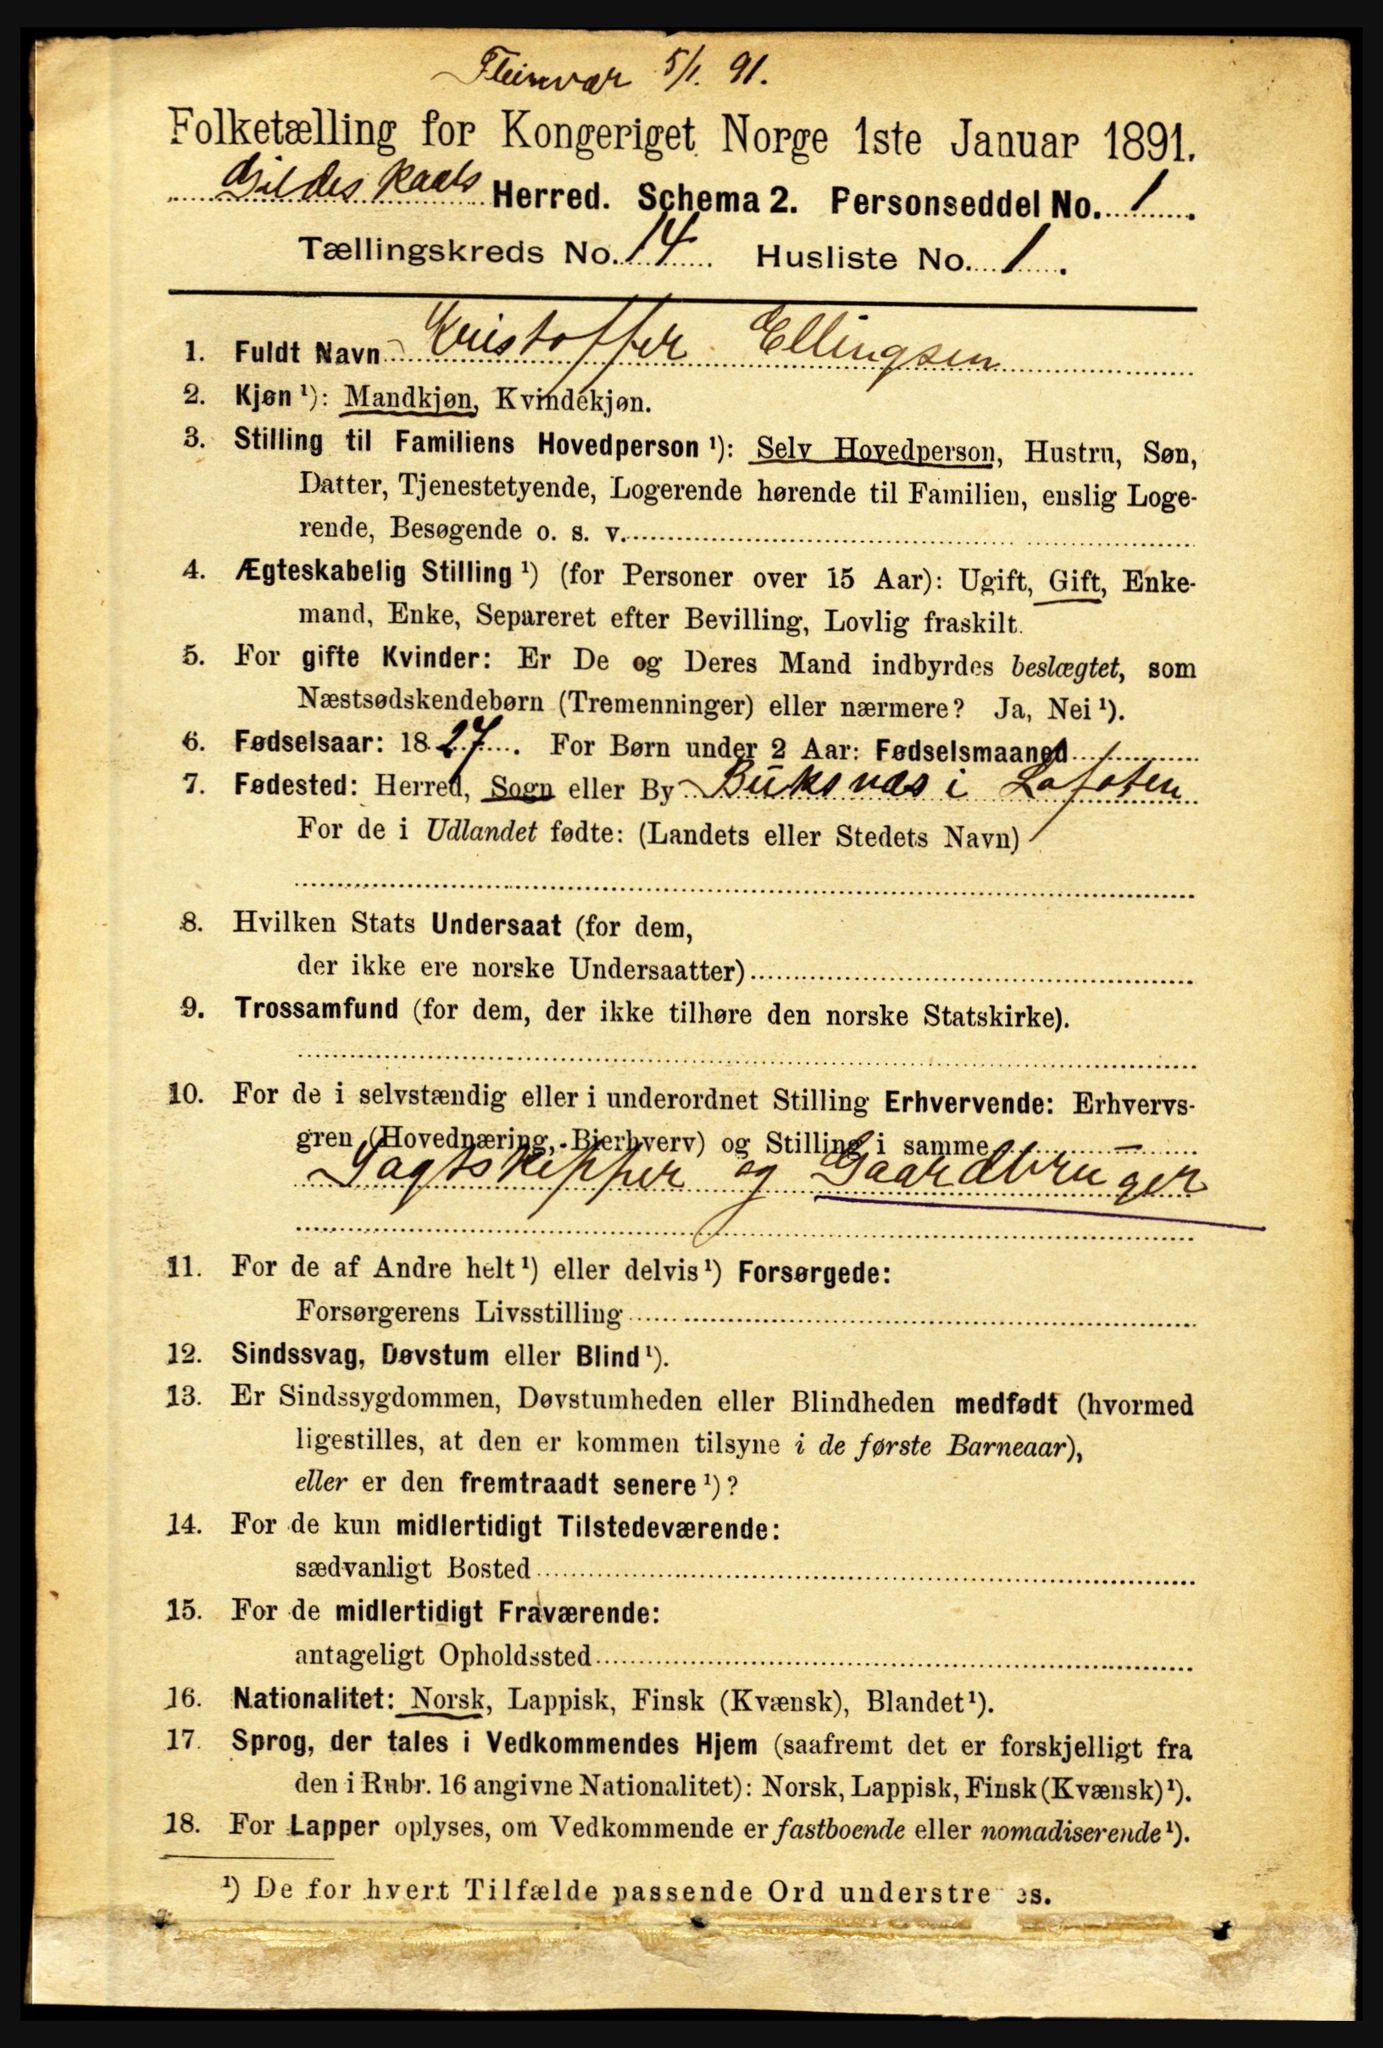 Fleinvær 5/1. 91.
Folketælling for Kongeriget Norge 1ste Januar 1891.
Gildeskaals Herred. Schema 2. Personseddel No. 1.
Tællingskreds No. 14 Husliste No. 1.
1. Fuldt Navn Kristoffer Ellingsen
2. Kjøn ¹): Mandkjøn, Kvindekjøn.
3. Stilling til Familiens Hovedperson ¹): Selv Hovedperson, Hustru, Søn,
Datter, Tjenestetyende, Logerende hørende til Familien, enslig Loge-
rende, Besøgende o. s. v.
4. Ægteskabelig Stilling ¹) (for Personer over 15 Aar): Ugift, Gift, Enke-
mand, Enke, Separeret efter Bevilling, Lovlig fraskilt.
5. For gifte Kvinder: Er De og Deres Mand indbyrdes beslægtet, som
Næstsødskendebørn (Tremenninger) eller nærmere? Ja, Nei ¹).
6. Fødselsaar: 1827. For Børn under 2 Aar: Fødselsmaaned
7. Fødested: Herred, Sogn eller By Buksnæs i Lofoten
For de i Udlandet fødte: (Landets eller Stedets Navn)
8. Hvilken Stats Undersaat (for dem,
der ikke ere norske Undersaatter)
9. Trossamfund (for dem, der ikke tilhøre den norske Statskirke).
10. For de i selvstændig eller i underordnet Stilling Erhvervende: Erhvervs-
gren (Hovednæring, Bierhverv) og Stilling i samme
Jagtskipper og Gaardbruger
11. For de af Andre helt ¹) eller delvis ¹) Forsørgede:
Forsørgerens Livsstilling
12. Sindssvag, Døvstum eller Blind ¹).
13. Er Sindssygdommen, Døvstumheden eller Blindheden medfødt (hvormed
ligestilles, at den er kommen tilsyne i de første Barneaar),
eller er den fremtraadt senere ¹)?
14. For de kun midlertidigt Tilstedeværende:
sædvanligt Bosted
15. For de midlertidigt Fraværende:
antageligt Opholdssted
16. Nationalitet: Norsk, Lappisk, Finsk (Kvænsk), Blandet ¹).
17. Sprog, der tales i Vedkommendes Hjem (saafremt det er forskjelligt fra
den i Rubr. 16 angivne Nationalitet): Norsk, Lappisk, Finsk (Kvænsk) ¹).
18. For Lapper oplyses, om Vedkommende er fastboende eller nomadiserende ¹).
¹) De for hvert Tilfælde passende Ord understre es.